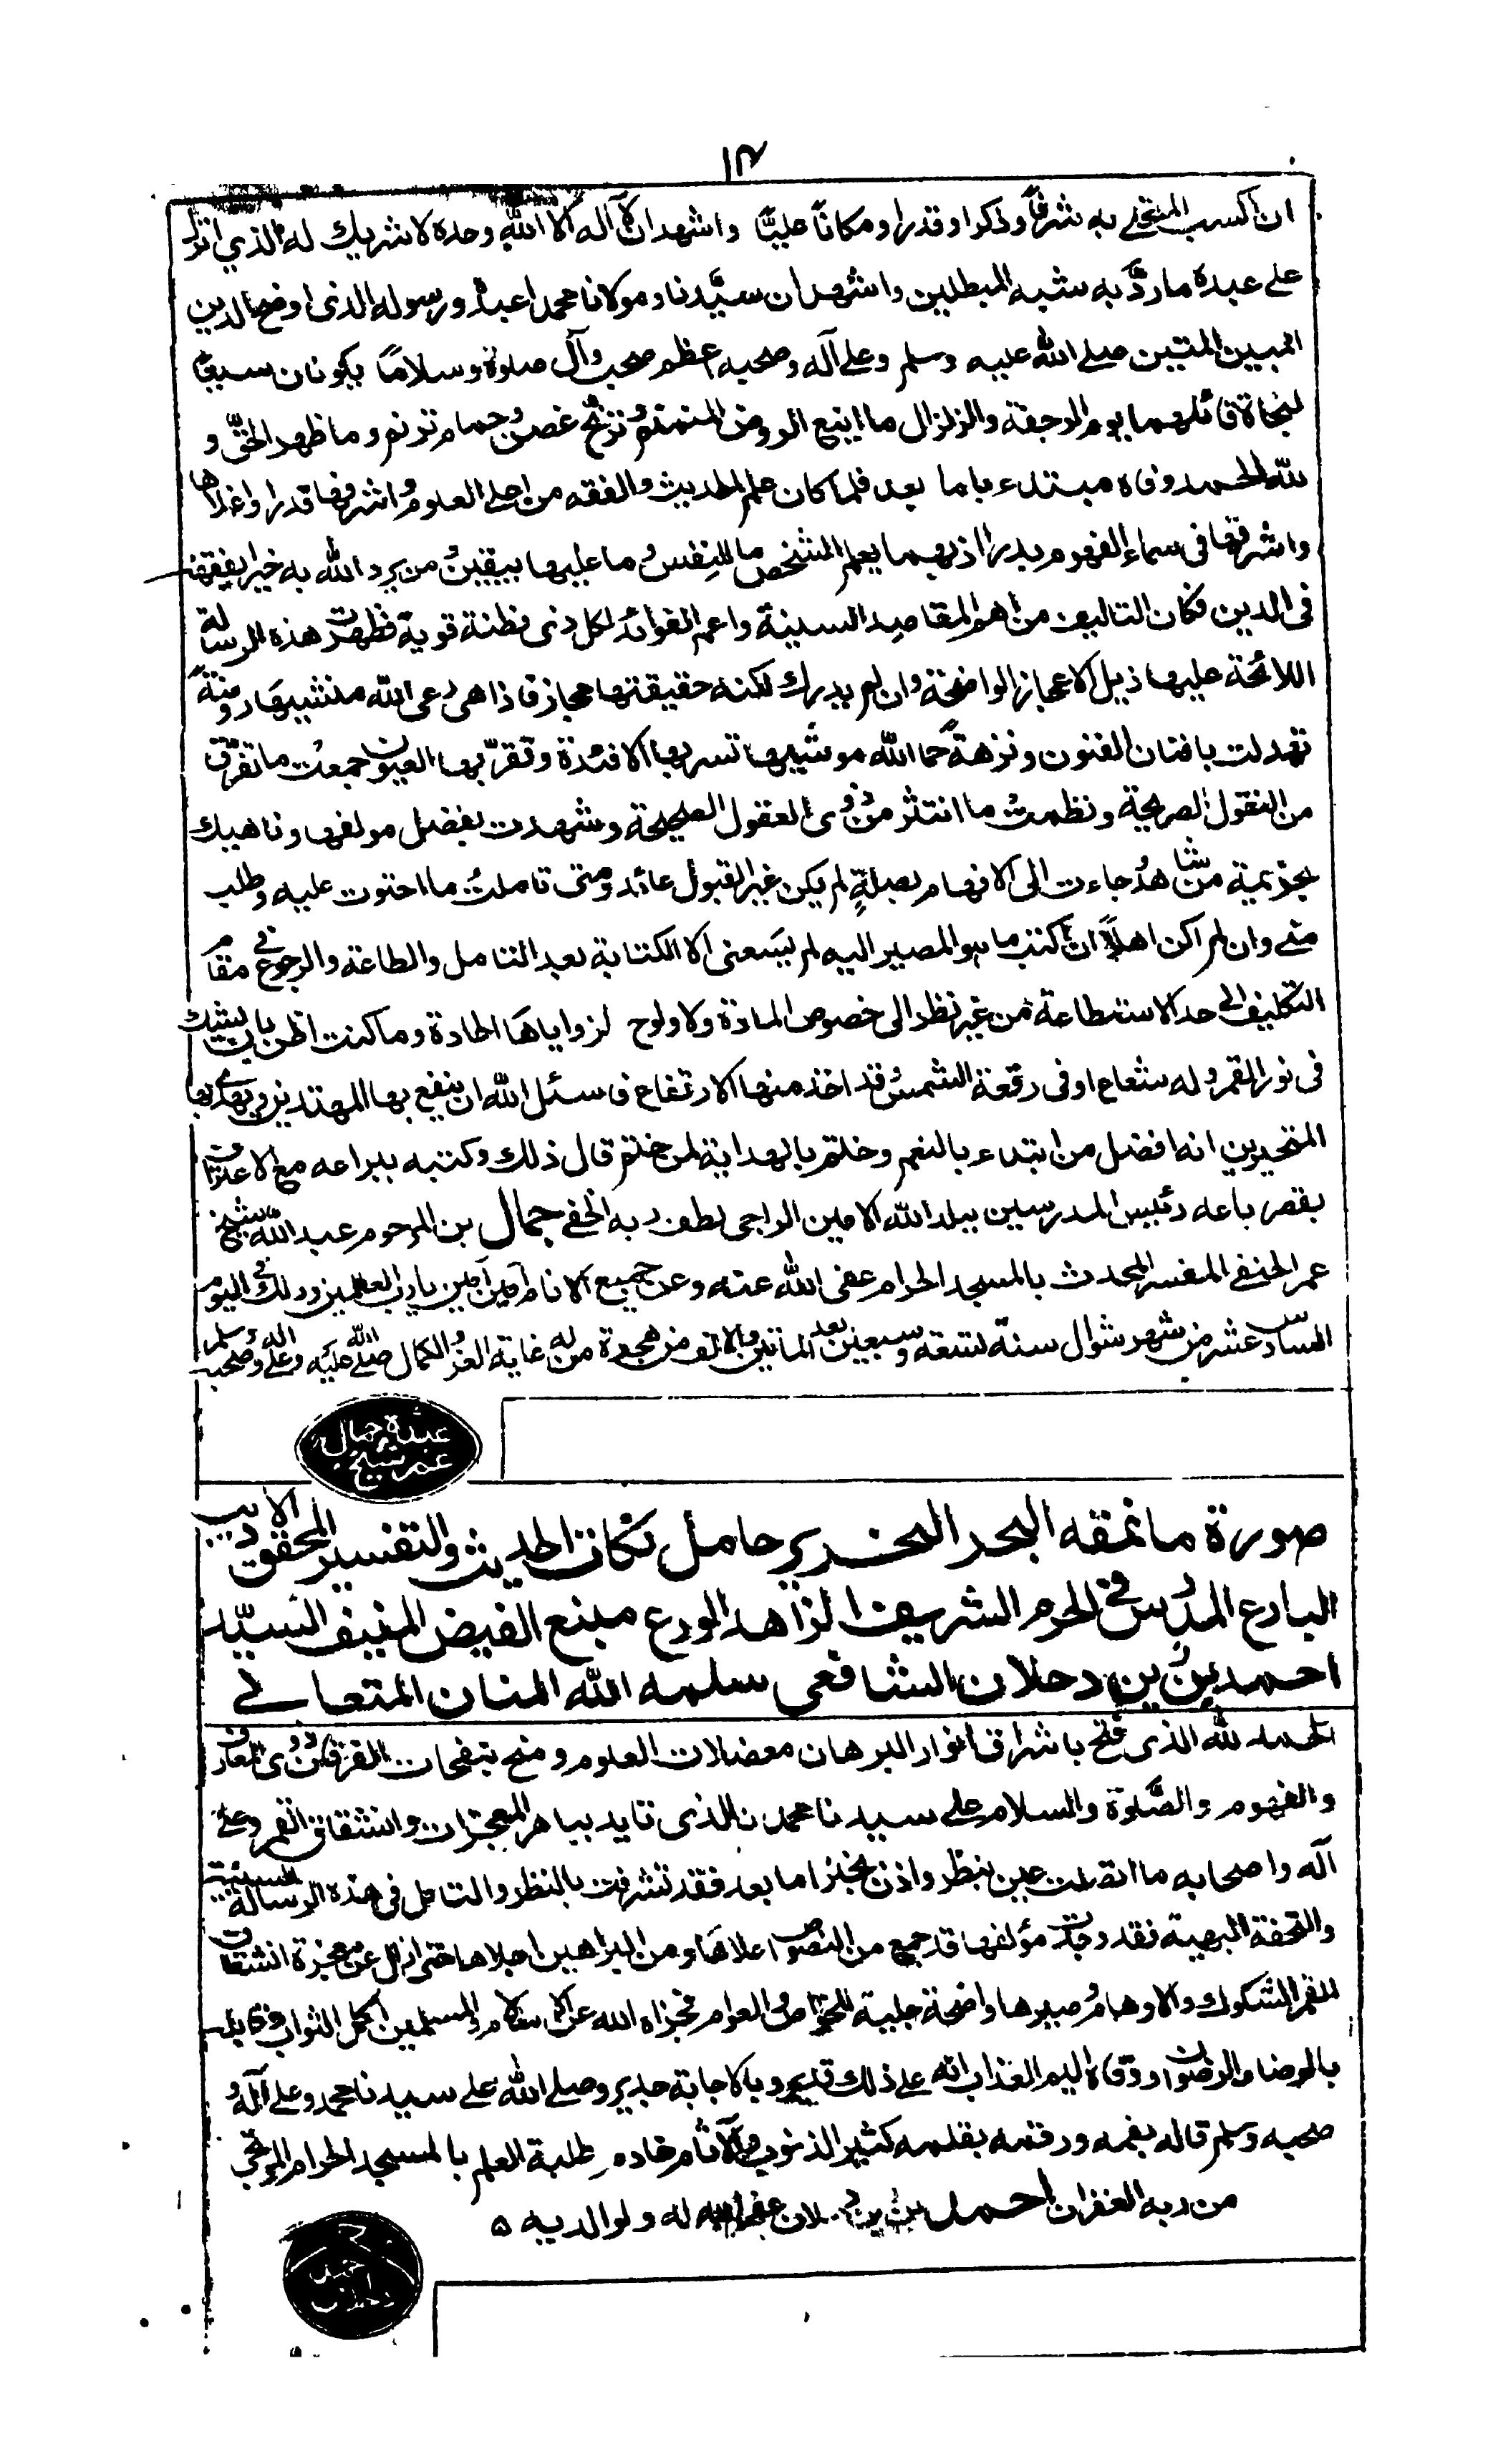 ١٢
ان اكسب المتحلے به شرفًا وذكرا وقدرا ومكانًا عليًّا واشهد ان لا آله الا الله وحده لا شريك له الذي انزل
علے عبده ما ردّ به شبه المبطلين واشهد ان سيّدنا ومولانا محمدا عبده ورسوله الذى اوضح الدين
المبين المتين صلے الله عليه وسلم وعلے آله وصحبه اعظم صحب وآل صلوة وسلامًا يكونان سببًا
لنجاة قائلهما يوم الرجفة والزلزال ما اينع الروض المنمنم وترنّح غصن وحمام ترنم وما ظهر الحقّ و
لله الحمد وفاه مبتدء باما بعد فلما كان علم الحديث والفقه من اجل العلوم واشرفها قدرا واغلاها
واشرقها فى سماء الفهوم بدرا اذ بهما يعلم الشخص ما للنفس وما عليها بيقين ومن يرد الله به خيرا يفقهه
فى الدين فكان التاليف من اهم المقاصد السنية واعم الفوائد لكل ذى فطنة قوية فظهرت هذه الرسالة
اللائحة عليها ذيل الاعجاز الواضحة وان لم يدرك لكنه حقيقتها مجاز فاذا هى رعى الله منشيها روضة
تهدلت بافنان الفنون ونزهة حما الله موشيها تسر بها الافئدة وتقرّ بها العيون جمعت ما تفرّق
من النقول الصريحة ونظمت ما انتثر من ذوى العقول الصحيحة وشهدت بفضل مولفها وناهيك
بحذيمة من شاهد جاءت الى الافهام بصلةٍ لم يكن غير القبول عائد ومتى تاملت ما احتوت عليه وطلب
منے وان لم اكن اهلًا ان اكتب ما هو المصير اليه لم يسعنى الا الكتابة بعد التامل والطاعة والرجوع فى مقام
التكليف الى حد الاستطاعة من غير نظر الى خصوص المادة ولا ولوج لزواياها الحادة وما كنت اظن بان يشك
فى نور القمر وله شعاع او فى رقعة الشمس وقد اخذ منها الارتفاع فاسئل الله ان ينفع بها المهتدين ويهدے بها
المتحيرين انه افضل من ابتداء بالنعم وختم بالهداية لمن ختم قال ذلك وكتبه بيراعه مع الاعتراف
بقصر باعه رئيس المدرسين ببلد الله الامين الراجى لطف ربه الخفے جمال بن المرحوم عبد الله شيخ
عمر الحنفے المفسر المحدث بالمسجد الحرام عفى الله عنه وعن جميع الانام آمين آمين يا رب العلمين وذلك فى اليوم
السادس عشر من شهر شوال سنة تسعة وسبعين بعد المائتين والالف من هجرة من له غاية العز والكمال صلے الله عليه وعلے آله وصحبه وسلم
عبده جمال
عمر شيخ
صورة ما نمقه البحر النحرير حامل نكات الحديث والتفسير المحقق الاديب
البارع المدرس فى الحرم الشريف الزاهد الورع منبع الفيض المنيف السيّد
احمد بن زين دحلان الشافعى سلمه الله المنان المتعالے
الحمد لله الذى فتح باشراق انوار البرهان معضلات العلوم ومنح بنفحات القرآن ذوى المعارف
والفهوم والصّلوة والسلام علے سيدنا محمد ن الذى تايد بباهر المعجزات وانشقاق القمر وعلے
آله واصحابه ما اتصلت عين بنظر واذن بخبر اما بعد فقد تشرفت بالنظر والتامل فى هذه الرسالة السنية
والتحفة البهية فقد وجدت مؤلفها قد جمع من النصوص اعلاها ومن البراهين اجلاها حتى ازال عن معجزة انشقاق
القمر الشكوك والاوهام وصيرها واضحة جلية للخواص والعوام فجزاه الله عن الاسلام والمسلمين اكمل الثواب وقابله
بالرضا والرضوان ووقاه اليم العذاب انه علے ذلك قدير وبالاجابة جدير وصلے الله علے سيدنا محمد وعلے آله و
صحبه وسلم قاله بفمه ورقمه بقلمه كثير الذنوب والآثام خادم طلبة العلم بالمسجد الحرام المرتجى
من ربه الغفران احمد بن زين دحلان غفر الله له ولوالديه ه